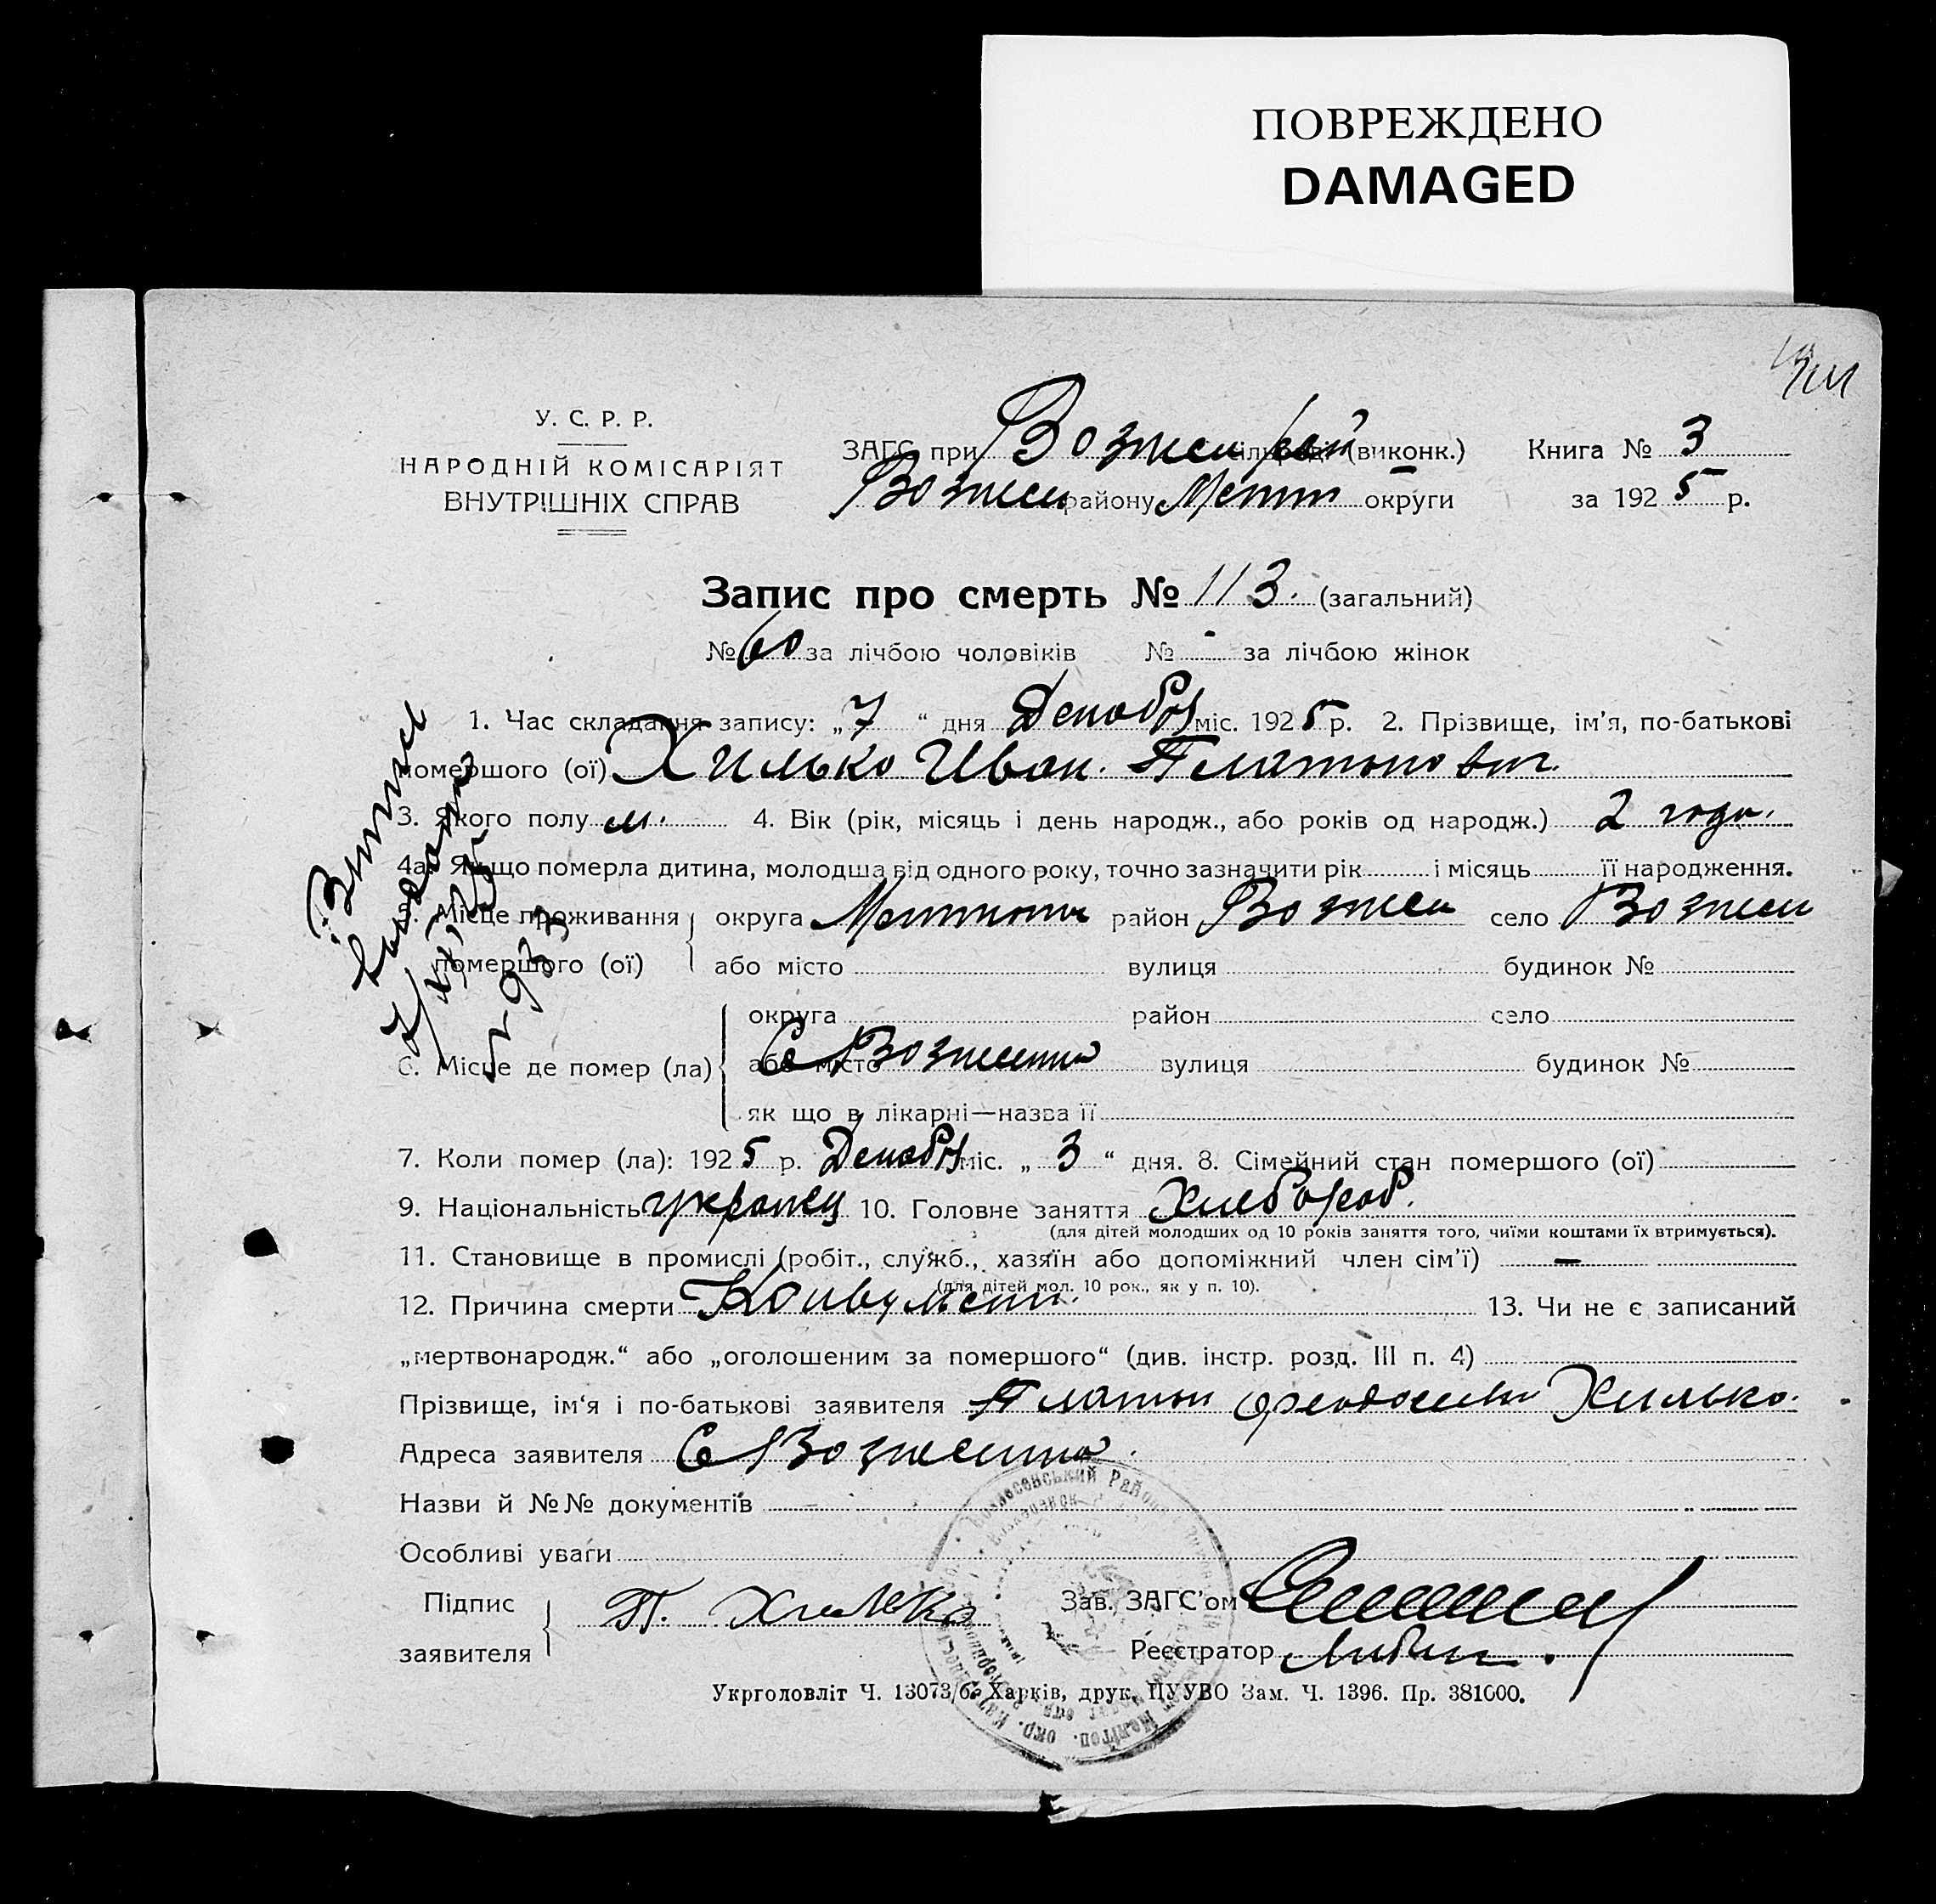 ПОВРЕЖДЕНО
DAMAGED
У. С. Р. Р.
НАРОДНІЙ КОМІСАРІЯТ
ВНУТРІШНІХ СПРАВ
ЗАГС при Вознесен рай (виконк.) Книга № 3
Вознесен району Мелит округи за 1925 р.
Запис про смерть № 113. (загальний)
№ 60 за лічбою чоловіків № - за лічбою жінок
1. Час складання запису: „7“ дня Декабря міс. 1925 р. 2. Прізвище, ім'я, по-батькові
помершого (ої) Хилько Иван. Платонович.
3. Якого полу м. 4. Вік (рік, місяць і день народж., або років од народж.) 2 года.
4а. Якщо померла дитина, молодша від одного року, точно зазначити рік і місяць її народження.
Місце проживання округа район Вознесен село Вознесен
помершого (ої) або місто вулиця будинок №
округа район село
6. Місце де помер (ла) або місто С Вознесенка вулиця будинок №
як що в лікарні—назва її
7. Коли помер (ла): 1925 р. Декабря міс. „3“ дня. 8. Сімейний стан помершого (ої)
9. Національність украинец 10. Головне заняття Хлебороб.
(для дітей молодших од 10 років заняття того, чиїми коштами їх втримується).
11. Становище в промислі (робіт., служб., хазяїн або допоміжний член сім'ї) —
(для дітей мол. 10 рок., як у п. 10).
12. Причина смерти 13. Чи не є записаний
„мертвонародж.“ або „оголошеним за помершого“ (див. інстр. розд. III п. 4)
Прізвище, ім'я і по-батькові заявителя Платон Хилько.
Адреса заявителя С Вознесенка.
Назви й №№ документів
Особливі уваги
Підпис
заявителя
П. Хилько
Зав. ЗАГС'ом
Реєстратор
Укрголовліт Ч. 13073/б. Харків, друк. ЦУУВО Зам. Ч. 1396. Пр. 381000.